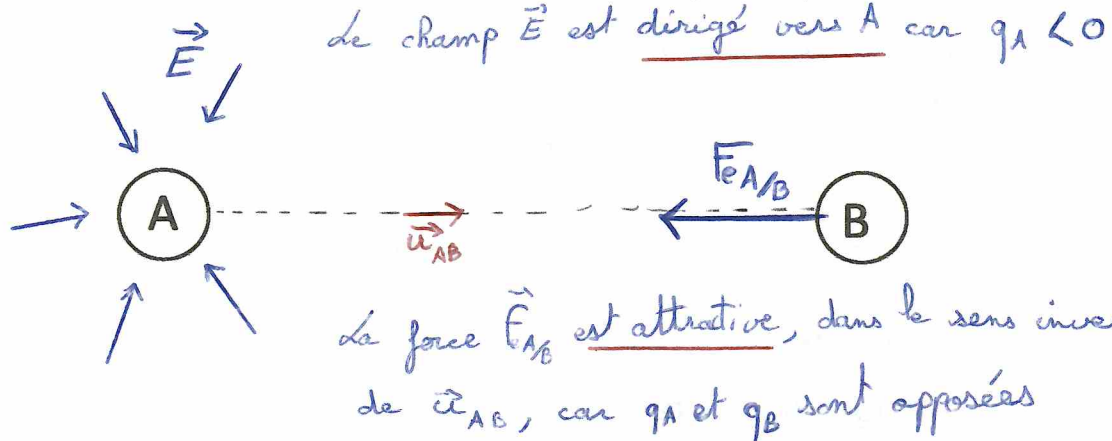 Le champ E⃗ est dirigé vers A car qA < 0
E⃗
A
u⃗AB
FeA/B
B
La force F⃗A/B est attractive, dans le sens inve
de u⃗AB, car qA et qB sont opposées